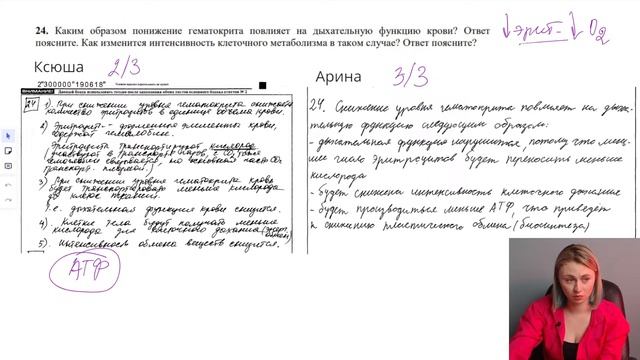 24. Каким образом понижение гематокрита повлияет на дыхательную функцию крови? Ответ
поясните. Как изменится интенсивность клеточного метаболизма в таком случае? Ответ поясните?
↓ эрит - ↓ O2
Ксюша 2/3
Арина 3/3
2"300000"190618"
ВНИМАНИЕ!
24
1). При снижении уровня гематокрита снижается
количество эритроцитов в единице объема крови.
2) Эритроциты - форменные элементы крови,
содержат гемоглобин.
Эритроциты транспортируют кислород
3) При снижении уровня гематокрита кровь
будет транспортировать меньше кислорода
т.е. дыхательная функция крови снизится.
4) Клетки тела будут получать меньше
кислорода для клеточного дыхания
5). Интенсивность обмена веществ снизится.
АТФ
24. Снижение уровня гематокрита повлияет на дыха-
тельную функцию следующим образом:
- дыхательная функция нарушится, потому что мень-
шее число эритроцитов будет переносить меньше
кислорода
- будет снижена интенсивность клеточного дыхания
- будет производиться меньше АТФ, что приведет
к снижению пластического обмена (биосинтеза)